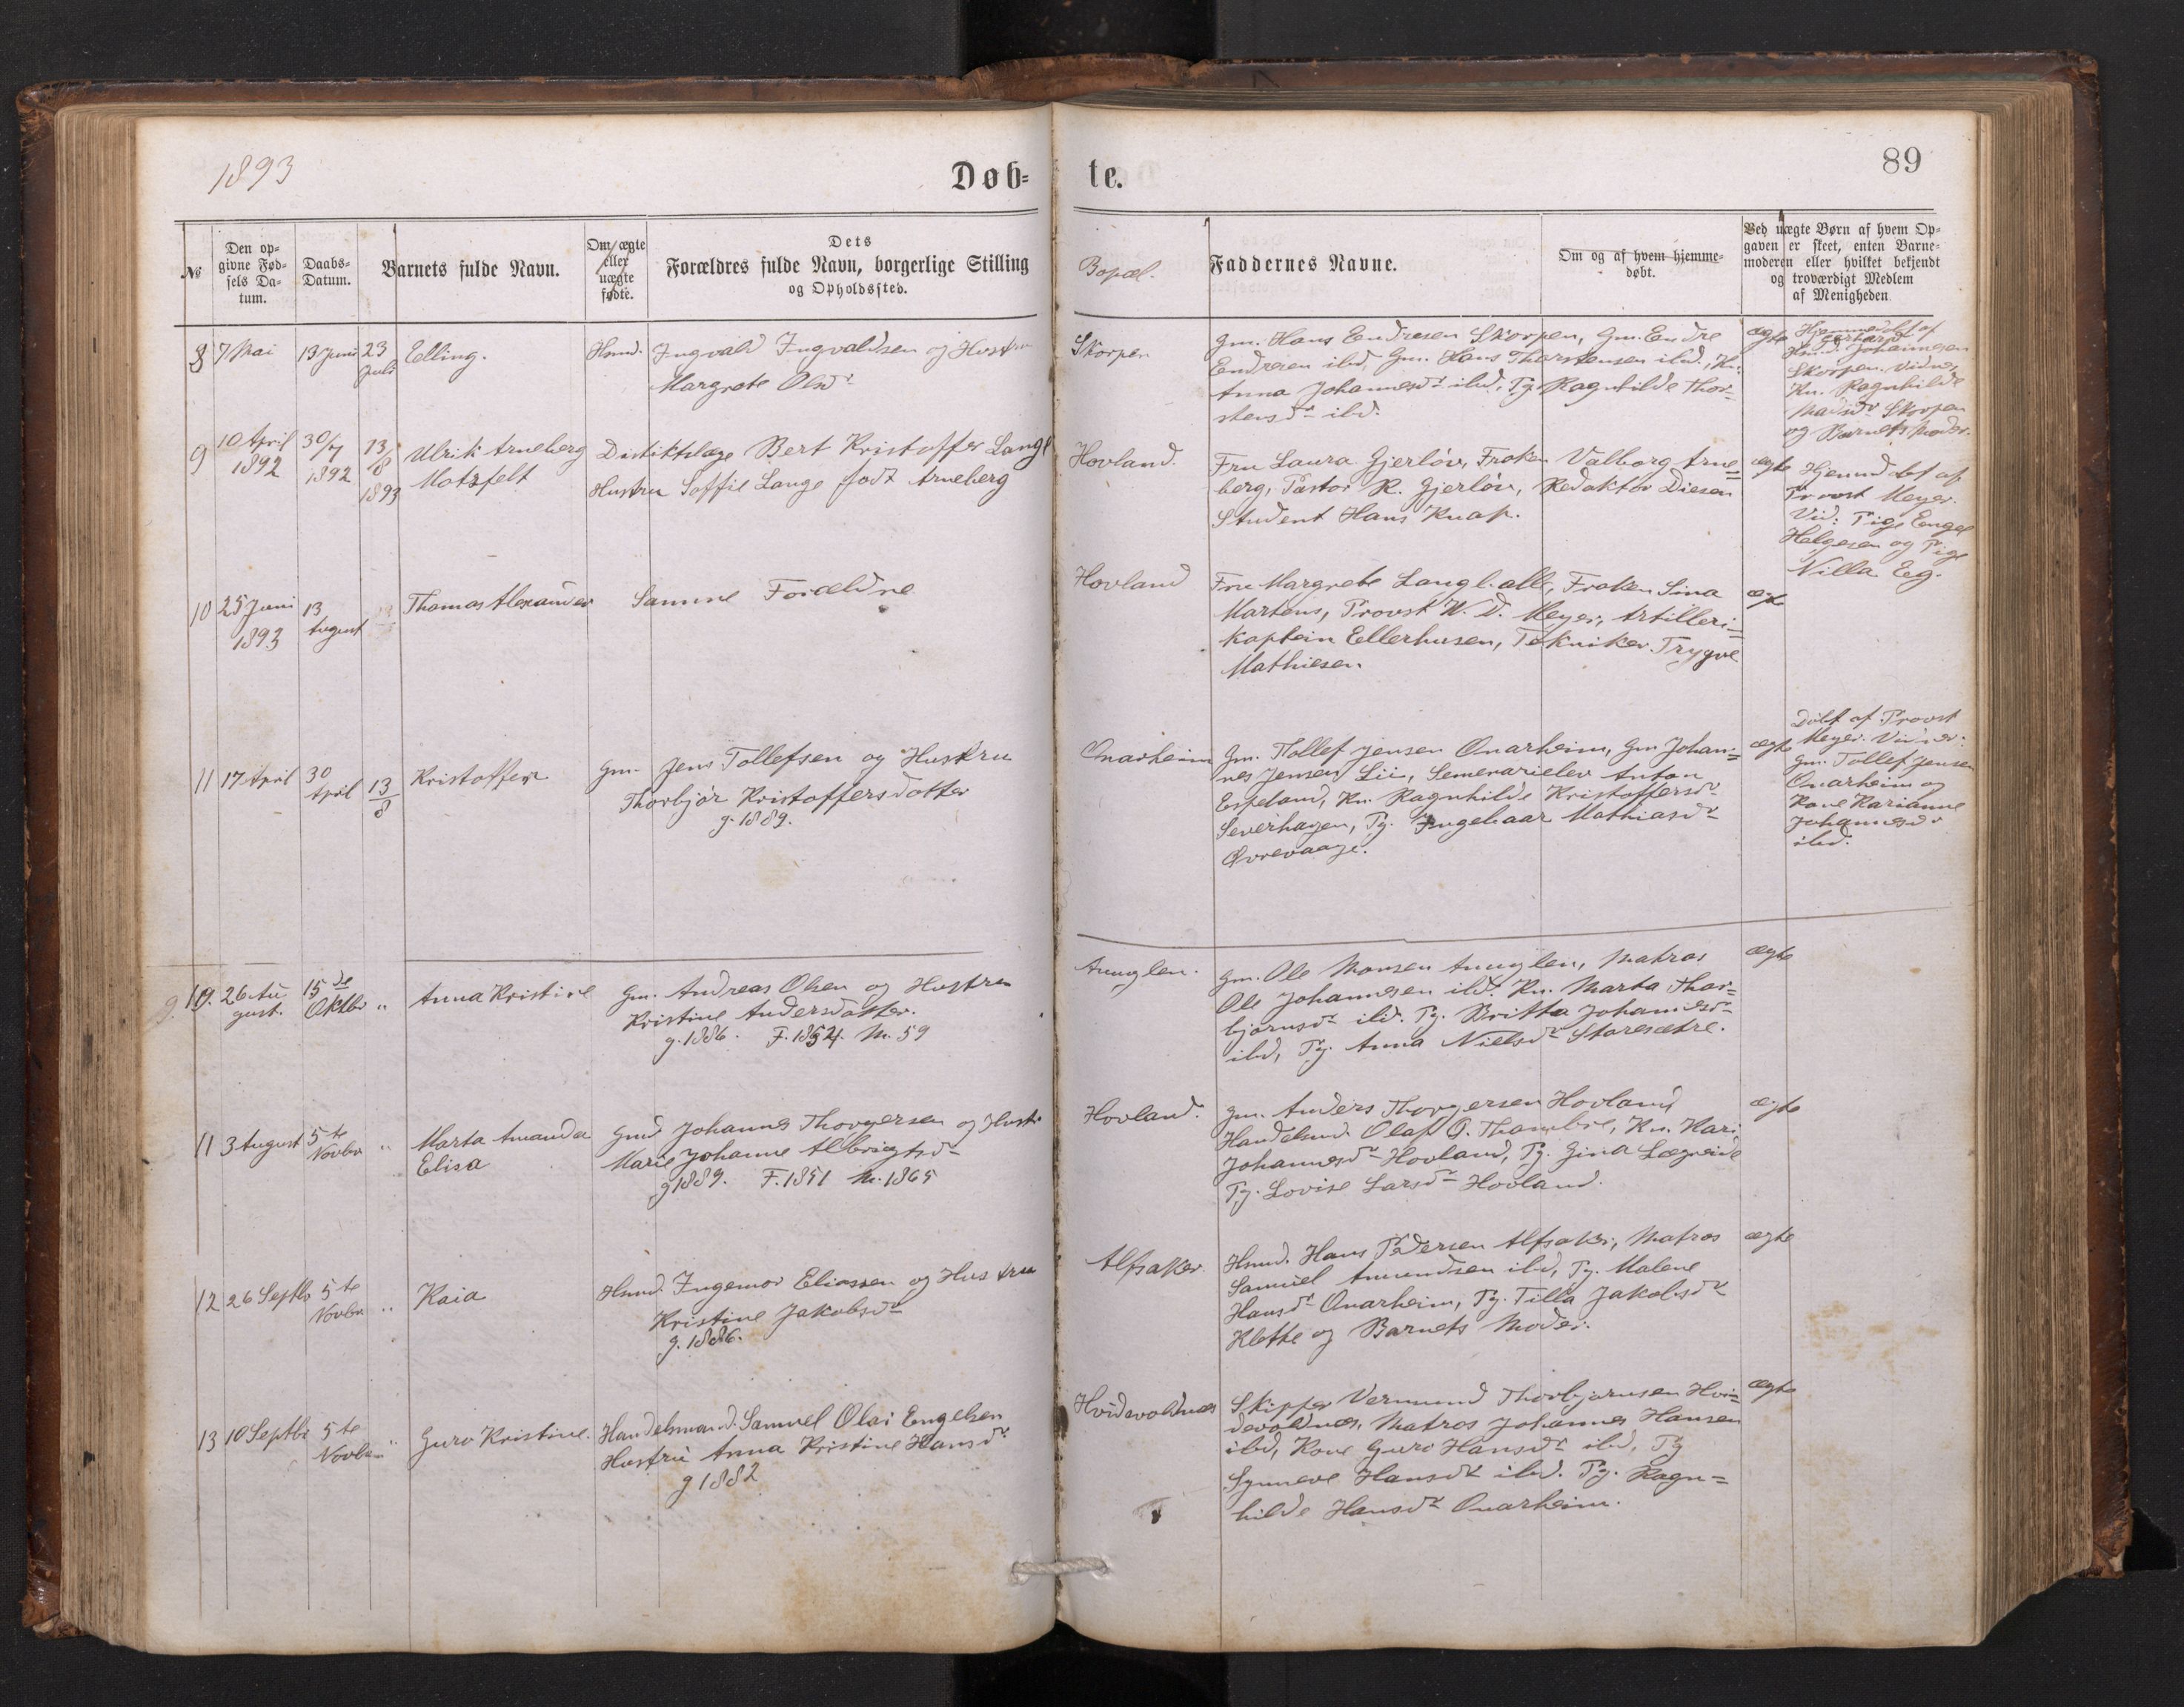 1893
Døb-
te.
89
No
Den op-
givne Fød-
sels Da-
tum.
Daabs-
Datum.
Barnets fulde Navn.
Om ægte
eller
uægte
fødte.
Dets
Forældres fulde Navn, borgerlige Stilling
og Opholdssted.
Bopæl.
Faddernes Navne.
Om og af hvem hjemme-
døbt.
Ved uægte Børn af hvem Op-
gaven er skeet, enten Barne-
moderen eller hvilket bekjendt
og troværdigt Medlem
af Menigheden
8 7 Mai 13 Juni 23 Juli Elling.
Hsmd. Ingvald Ingvaldsen og Hustru
Margrete Olsdr
Skorpen
Gm. Hans Endresen Skorpen, Gm. Endre
Endresen ibd, Gm. Hans Thorstensen ibd, Kn.
Anna Johannesdr ibd, Pg. Ragnhilde Thor-
stensdr ibd.
ægte
Hjemmedøbt af
Johannesen
Skorpen. Vidner
Kn. Ragnhilde
Madsdr Skorpen
og Barnets Moder.
9 10 April 1892 30/7 1892 13/8 1893
Ulrik Arneberg
Motzfelt
Distiktslæge Bert Kristoffer Lange
Hustru Soffie Lange født Arneberg
Hovland.
Fru Laura Gjerløw, Frøken Valborg Arne-
berg, Pastor R. Gjerløw, Redaktør Diesen
Student Hans Knap.
ægte
Hjemmed. af
Provst Meyer.
Vid: Pige Engel
Helgesen og Pige
Villa Eg.
10 25 Juni 1893 13 August
Thomas Alexander
Samme Forældre
Hovland
Fru Margrete Langballe, Frøken Sina
Martens, Provst W. D. Meyer, Artilleri-
kaptein Ellerhusen, Tekniker Trygve
Mathiesen.
ægte
11 17 April 30 April 13/8 Kristoffer
Gm. Jens Tollefsen og Hustru
Thorbjør Kristoffersdotter
g. 1889.
Onarheim
Gm. Tollef Jensen Onarheim, Gm Johan-
nes Jensen Lii, Semenarielev Anton
Espeland, Kn. Ragnhilde Kristoffersdr
Severhagen, Pg. Ingebaar Mathiasdr
Øvrevaage.
ægte
Døbt af Provst
Meyer. Vidner:
Gm. Tollef Jensen
Onarheim og
Kone Karianne
Johannesdr
ibd.
10. 26 Au-
gust. 15de Oktbr " Anna Kristine
Gm. Andreas Olsen og Hustru
Kristine Andersdotter.
g. 1886. F. 1854. M. 59
Anuglen.
Gm. Ole Monsen Anuglen, Matros
Ole Johannesen ibd. Kn. Marta Thor-
bjørnsdr ibd. Pg. Britta Johannesdr
ibd, Pg. Anna Nielsdr Storesætre.
ægte
11 3 August 5te Novbr " Marta Amanda
Elisa
Gmd Johannes Thorgersen og Hustr.
Marie Johanne Albrigtsdr
g 1889. F. 1851 M. 1865
Hovland.
Gm. Anders Thorgersen Hovland
Handelsmd. Olaf O. , Kn. Kari
Johannesdr Hovland, Pg. Gina Lægreide
Pg. Lovise Larsdr Hovland.
ægte
12 26 Septbr 5te Novbr " Kaia
Hsmd. Ingemor Eliassen og Hustru
Kristine Jakobsdr
g. 1886.
Alfsaker.
Hsmd. Hans Pedersen Alfsaker, Matros
Samuel Amundsen ibd, Pg. Malene
Hansdr Onarheim, Pg. Tilla Jakobsdr
Klette og Barnets Moder.
ægte
13 10 Septbr 5te Novbr " Guro Kristine.
Handelsmand. Samuel Olai Engelsen
Hustru Anna Kristine Hansdr
g 1882
Hvidevoldnæs
Skipper Vermund Thorbjørnsen Hvi-
devoldnæs, Matros Johannes Hansen
ibd, Kone Guro Hansdr ibd, Pg
Synneve Hansdr ibd. Pg. Ragn-
hilde Hansdr Onarheim.
ægte